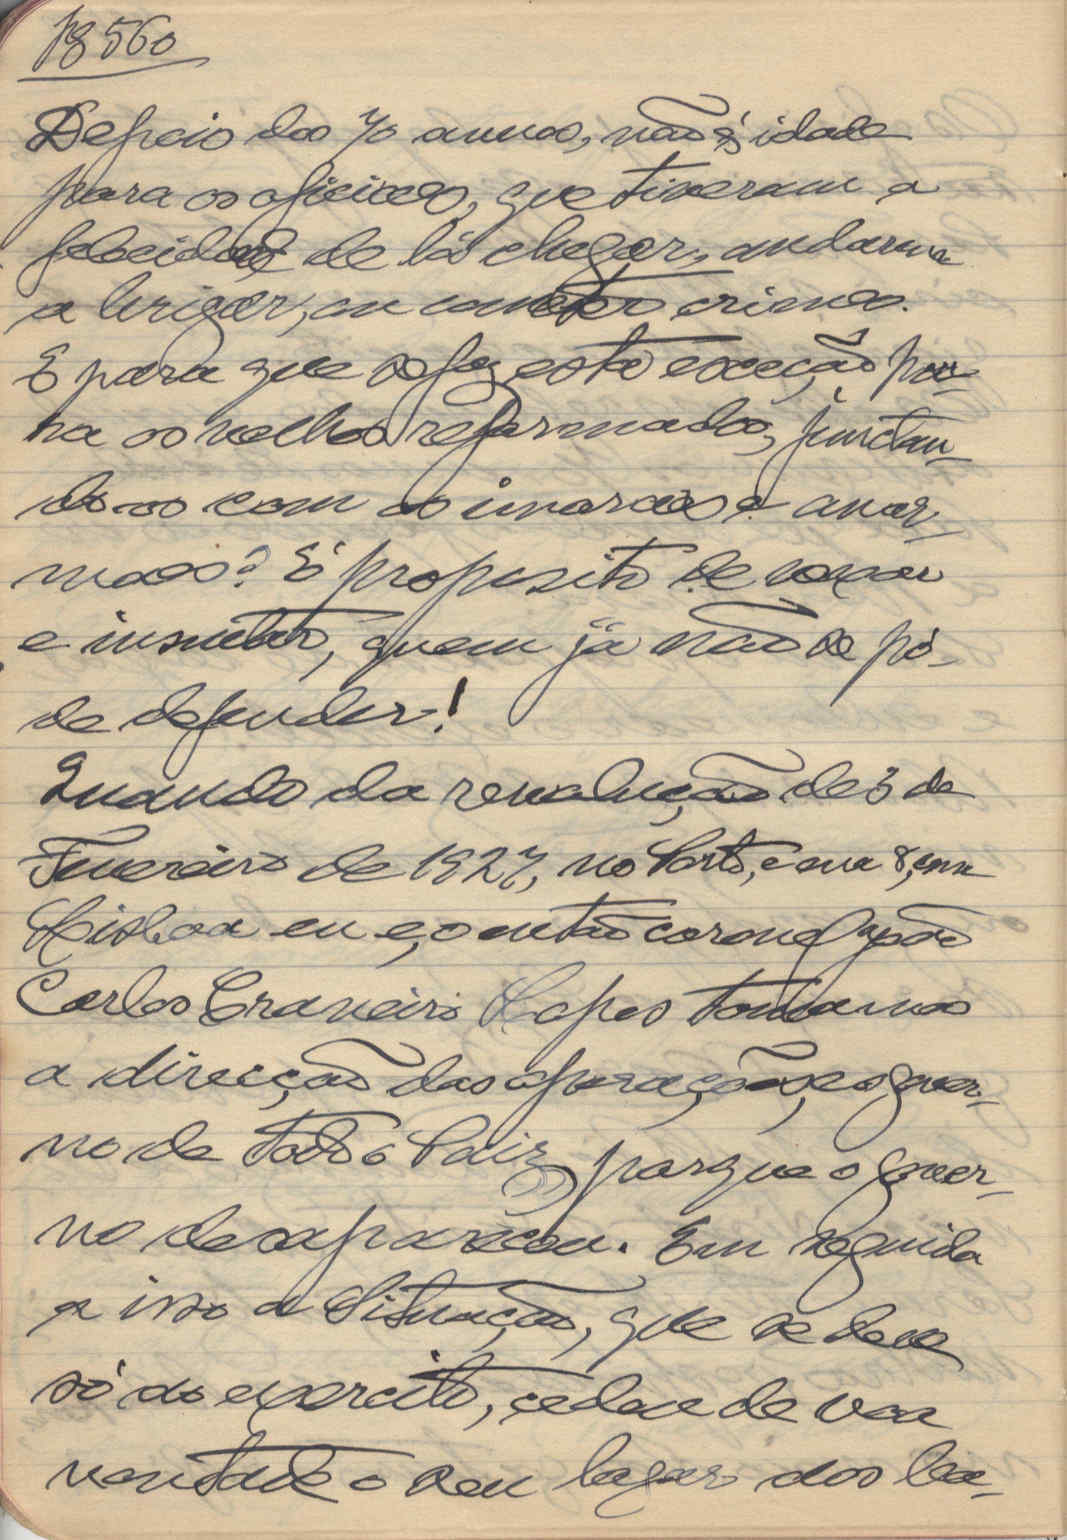 Pg 560
Depois dos 70 annos, não é idade
para os oficiaes, que tiveram a
felecidade de lá chegar, andarem
a brigar, em
E para que se fez esta exceção pa-
ra os velhos reformados, junctan-
do-os com os incorães e
É proposito de vexar
e insultar, quem já não se pó-
de defender!
Quando da revolução de 3 de
Fevereiro de 1927, no Porto, e em 8, em
Lisboa eu e, o então coronel João
Carlos Craveiro Lopes tomamos
a direcção das operações, e o gover-
no de todo o Paiz, porque o gover-
no desapareceu. Em seguida
a isso a Situação, que se deve
só ao exercito, cedeu de boa
vontade o seu logar aos ba-